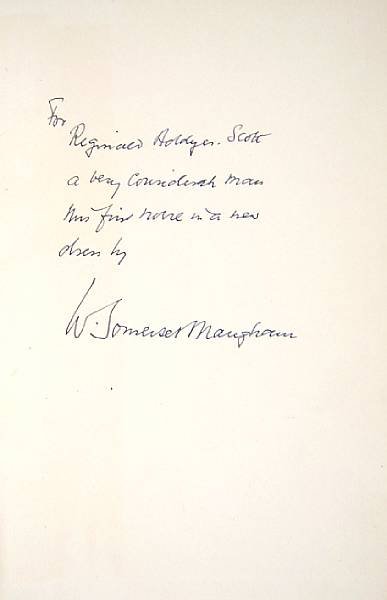 For
Reginald Holdyer. Scott
a very Considerate man
this first novel in a new
dress by
W. Somerset Maugham